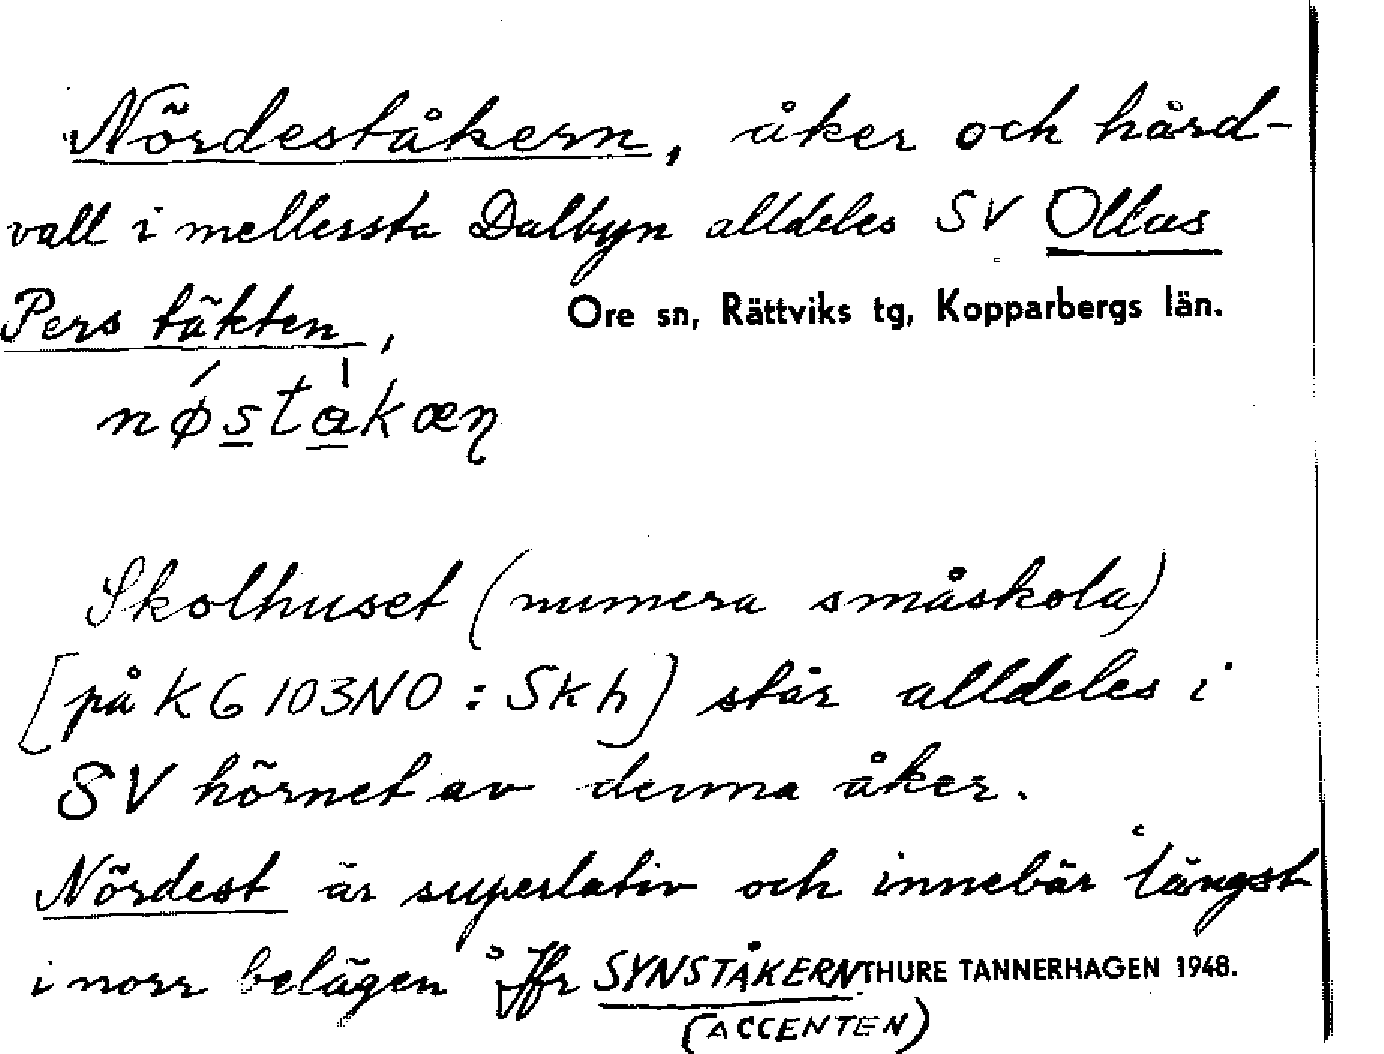 Nördeståkern, åker och hård-
vall i mellersta Dalbyn alldeles SV Ollas
Pers täkten,
Ore sn, Rättviks tg, Kopparbergs län.
nøstakæn
Skolhuset (numera småskola)
[på K G 103 NO : Skh) står alldeles i
SV hörnet av denna åker.
Nördest är superlativ och innebär 'längst
i norr belägen' Jfr SYNSTÅKERN THURE TANNERHAGEN 1948.
(ACCENTEN)